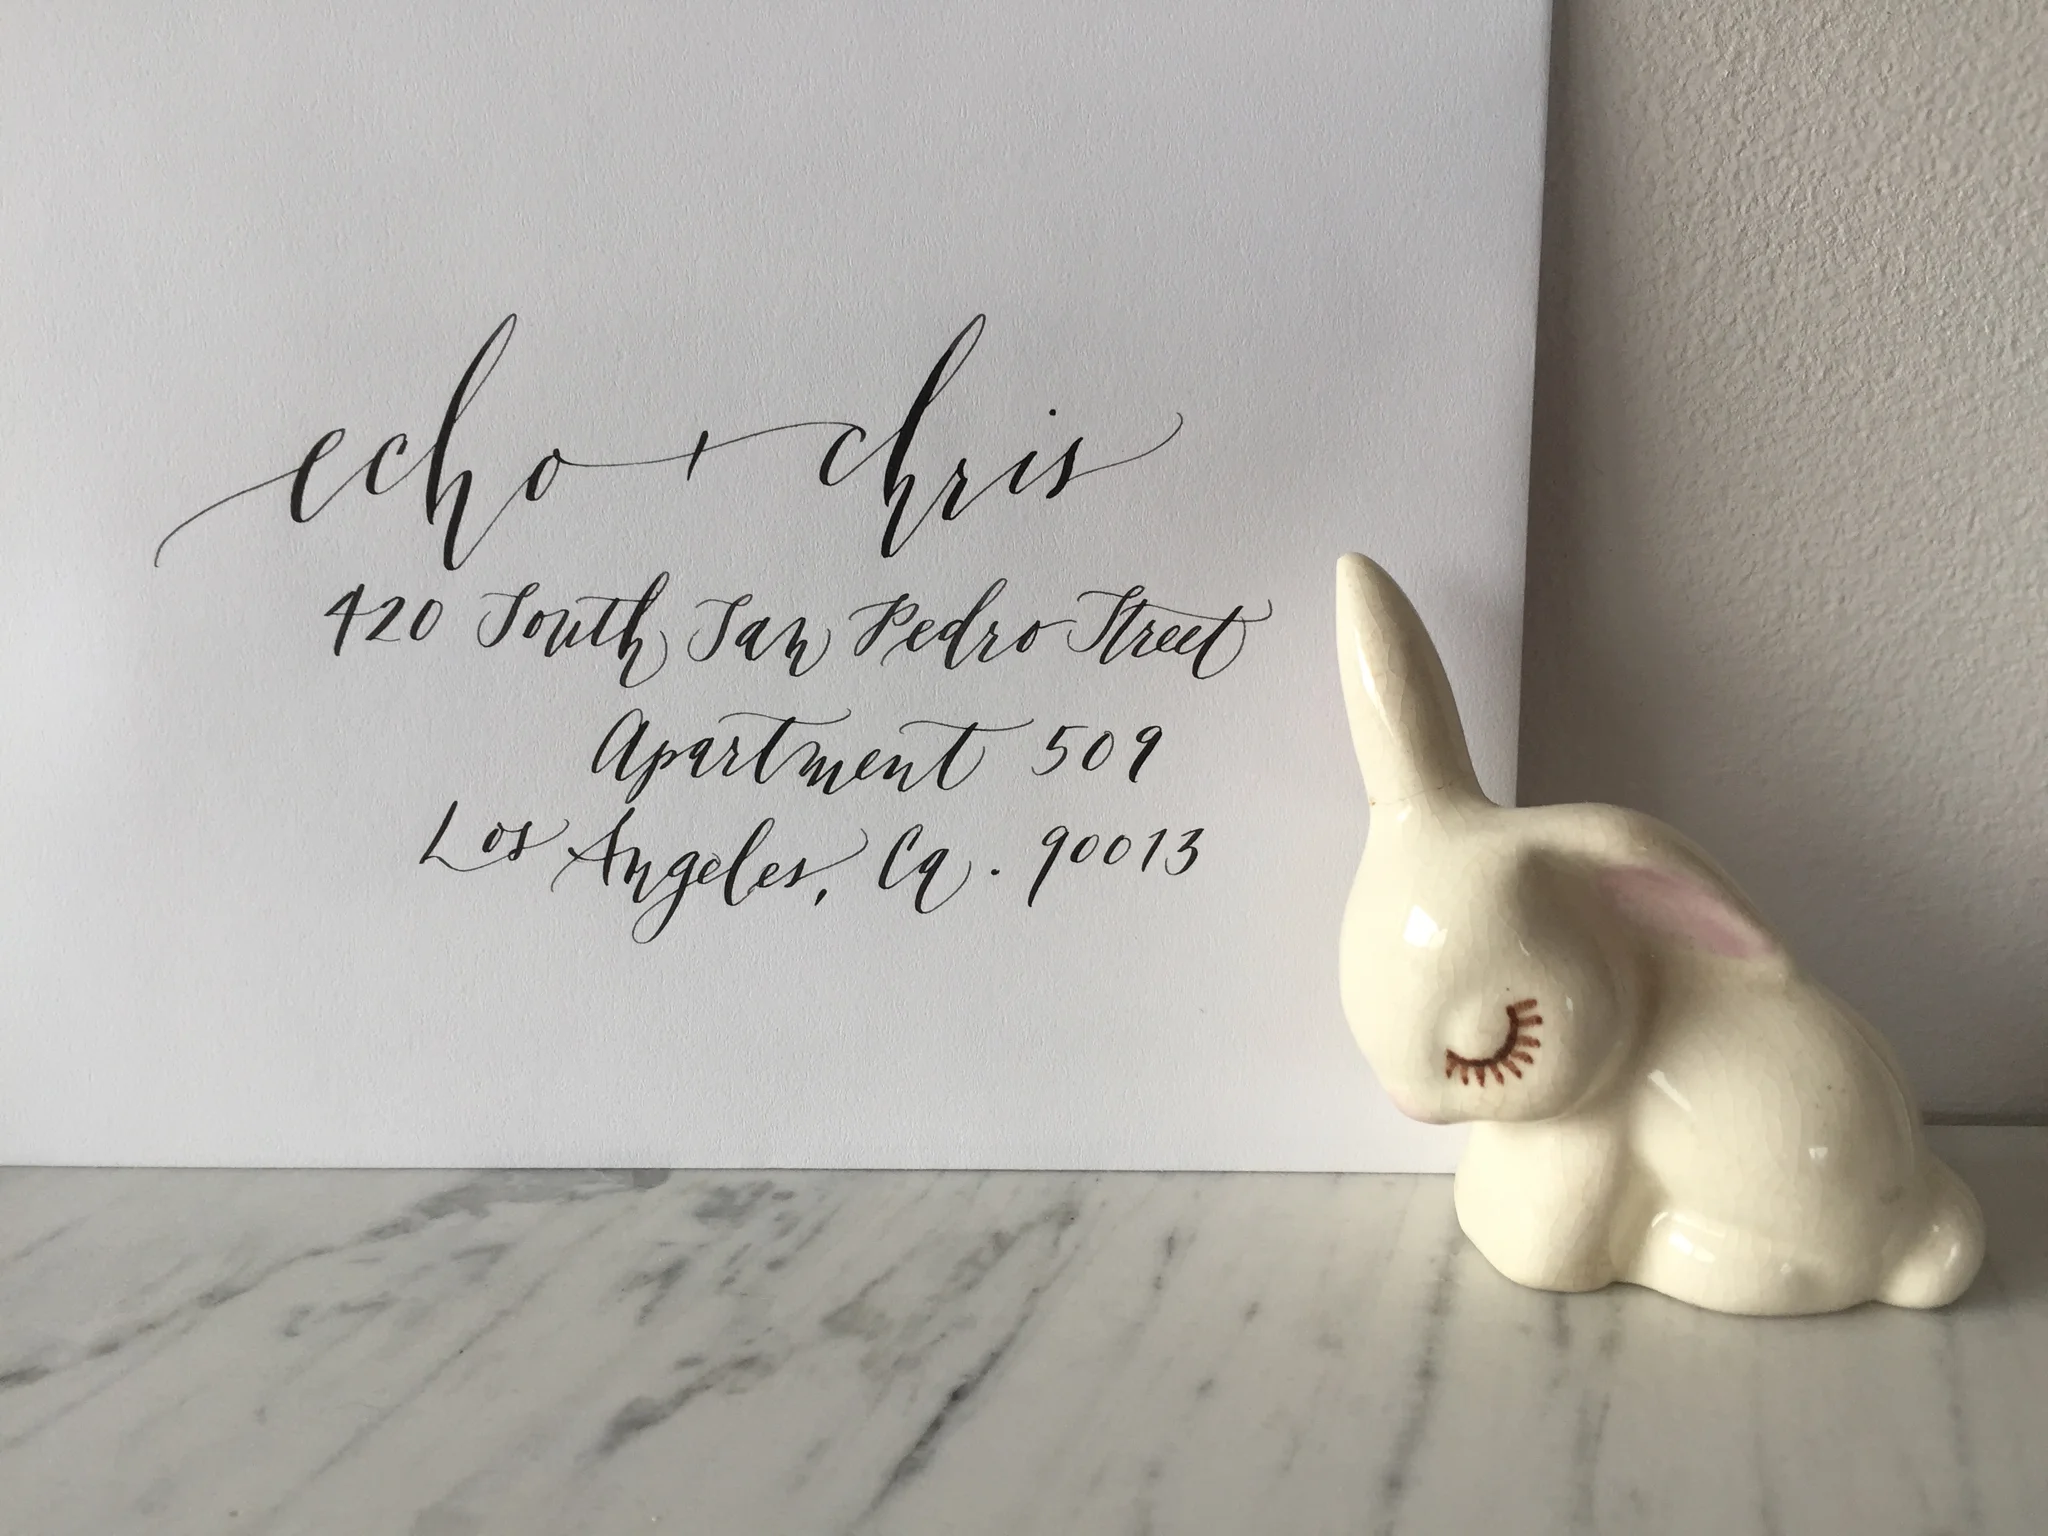 echo + chris
420 South San Pedro Street
Apartment 509
Los Angeles, Ca. 90013